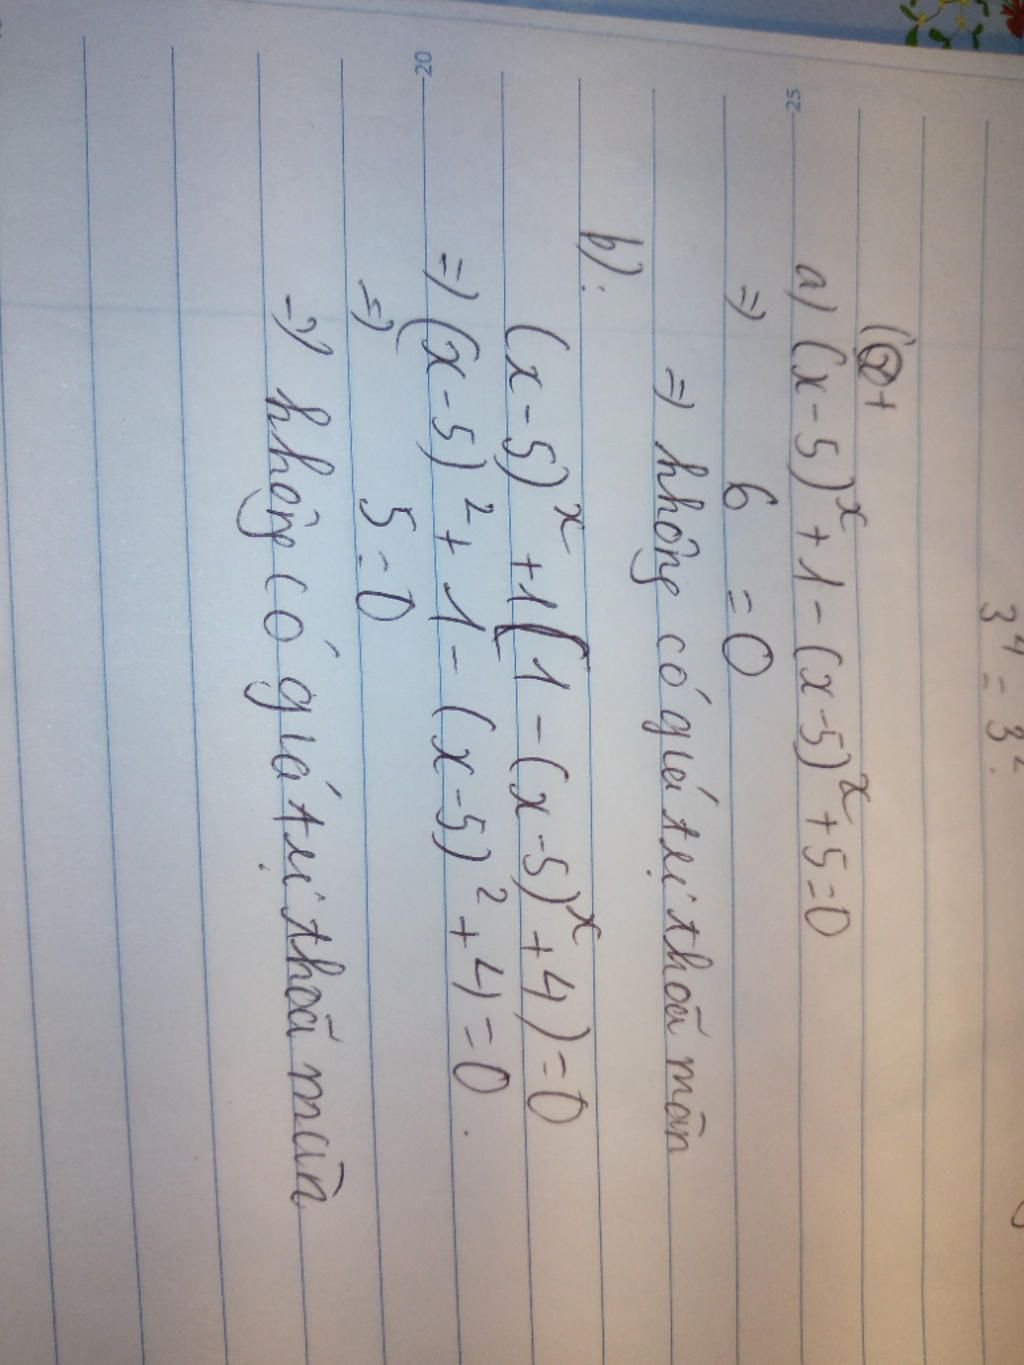 3⁴ = 3².
(+
a) (x-5)ˣ + 1 - (x-5)ˣ + 5 = 0
=) 6 = 0
25
=) không có giá trị thoã mãn
b):
(x-5)ˣ + 1 (1 - (x-5)ˣ + 4) = 0
=) (x-5)² + 1 - (x-5)² + 4 = 0.
20
=) 5 = 0
=) không có giá trị thoã mãn